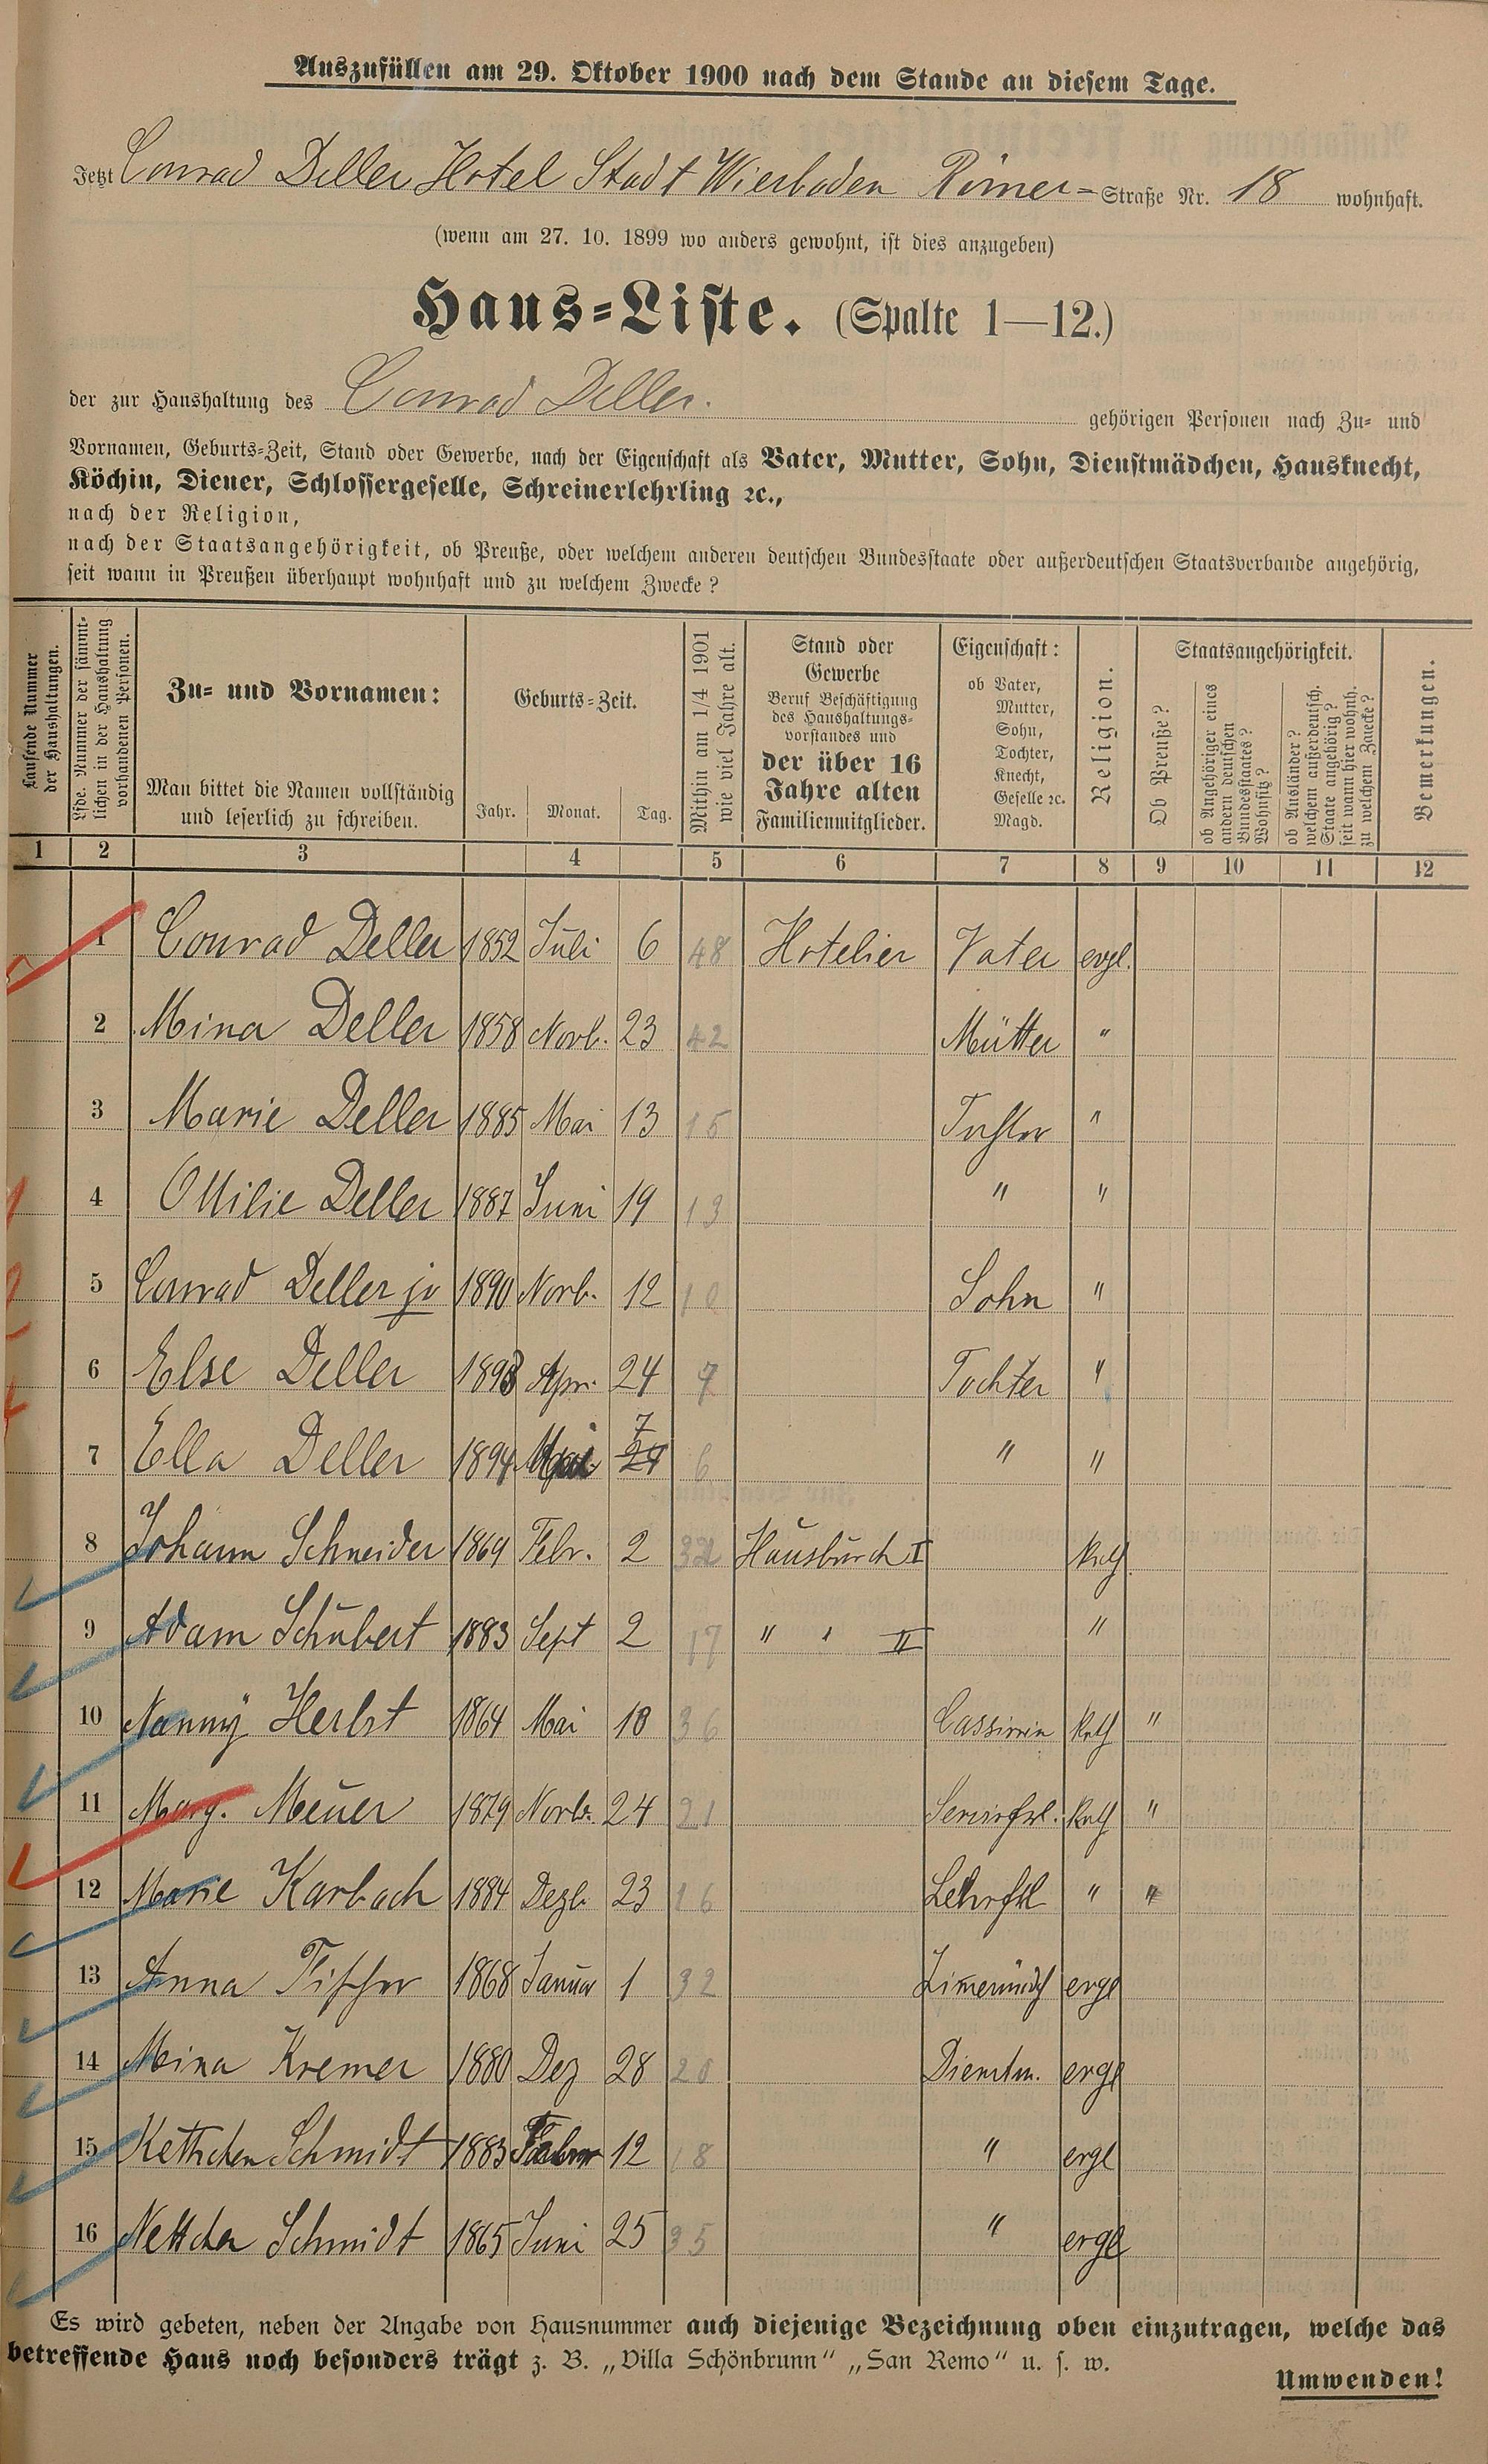 Auszufüllen am 29. Oktober 1900 nach dem Stande an diesem Tage.
Jetzt Conrad Deller Hotel Stadt Wiesbaden Römer-Straße Nr. 18 wohnhaft.
(wenn am 27. 10. 1899 wo anders gewohnt, ist dies anzugeben)
Haus-Liste. (Spalte 1—12.)
der zur Haushaltung des Conrad Deller. gehörigen Personen nach Zu- und
Vornamen, Geburts-Zeit, Stand oder Gewerbe, nach der Eigenschaft als Vater, Mutter, Sohn, Dienstmädchen, Hausknecht,
Köchin, Diener, Schlossergeselle, Schreinerlehrling ꝛc.,
nach der Religion,
nach der Staatsangehörigkeit, ob Preuße, oder welchem anderen deutschen Bundesstaate oder außerdeutschen Staatsverbande angehörig,
seit wann in Preußen überhaupt wohnhaft und zu welchem Zwecke?
Laufende Nummer
der Haushaltungen.
Lfde. Nummer der sämmt-
lichen in der Haushaltung
vorhandenen Personen.
Zu- und Vornamen:
Man bittet die Namen vollständig
und leserlich zu schreiben.
Geburts-Zeit.
Jahr. Monat. Tag.
Mithin am 1/4 1901
wie viel Jahre alt.
Stand oder
Gewerbe
Beruf Beschäftigung
des Haushaltungs-
vorstandes und
der über 16
Jahre alten
Familienmitglieder.
Eigenschaft:
ob Vater,
Mutter,
Sohn,
Tochter,
Knecht,
Geselle ꝛc.
Magd.
Religion.
Staatsangehörigkeit.
Ob Preuße?
ob Angehöriger eines
andern deutschen
Bundesstaates?
Wohnsitz?
ob Ausländer?
welchem außerdeutsch.
Staate angehörig?
seit wann hier wohnh.
zu welchem Zwecke?
Bemerkungen.
1 2 3 4 5 6 7 8 9 10 11 12
1 Conrad Deller 1852 Juli 6 48 Hotelier Vater evgl.
2 Mina Deller 1858 Novb. 23 42 Mutter "
3 Marie Deller 1885 Mai 13 15 Tochter "
4 Ottilie Deller 1887 Juni 19 13 " "
5 Conrad Deller jr 1890 Novb. 12 10 Sohn "
6 Else Deller 1893 Apr. 24 7 Tochter "
7 Ella Deller 1894 Mai 7 6 " "
8 Johann Schneider 1869 Febr. 2 Hausbursch I kath
9 Adam Schubert 1883 Sept 2 17 " " II "
10 Nanny Herbst 1864 Mai 10 36 Cassirerin kath "
11 Marg. Meuer 1879 Novb. 24 21 Servirfrl. kath "
12 Marie Karbach 1884 Dezb 23 16 Lehrfrl " "
13 Anna Fischer 1868 Januar 1 32 Zimermädch evgl
14 Mina Kremer 1880 Dez 28 20 Dienstm. evgl
15 Kethchen Schmidt 1883 12 18 " evgl
16 Nettchen Schmidt 1865 Juni 25 35 " evgl
Es wird gebeten, neben der Angabe von Hausnummer auch diejenige Bezeichnung oben einzutragen, welche das
betreffende Haus noch besonders trägt z. B. „Villa Schönbrunn“ „San Remo“ u. s. w.
Umwenden!